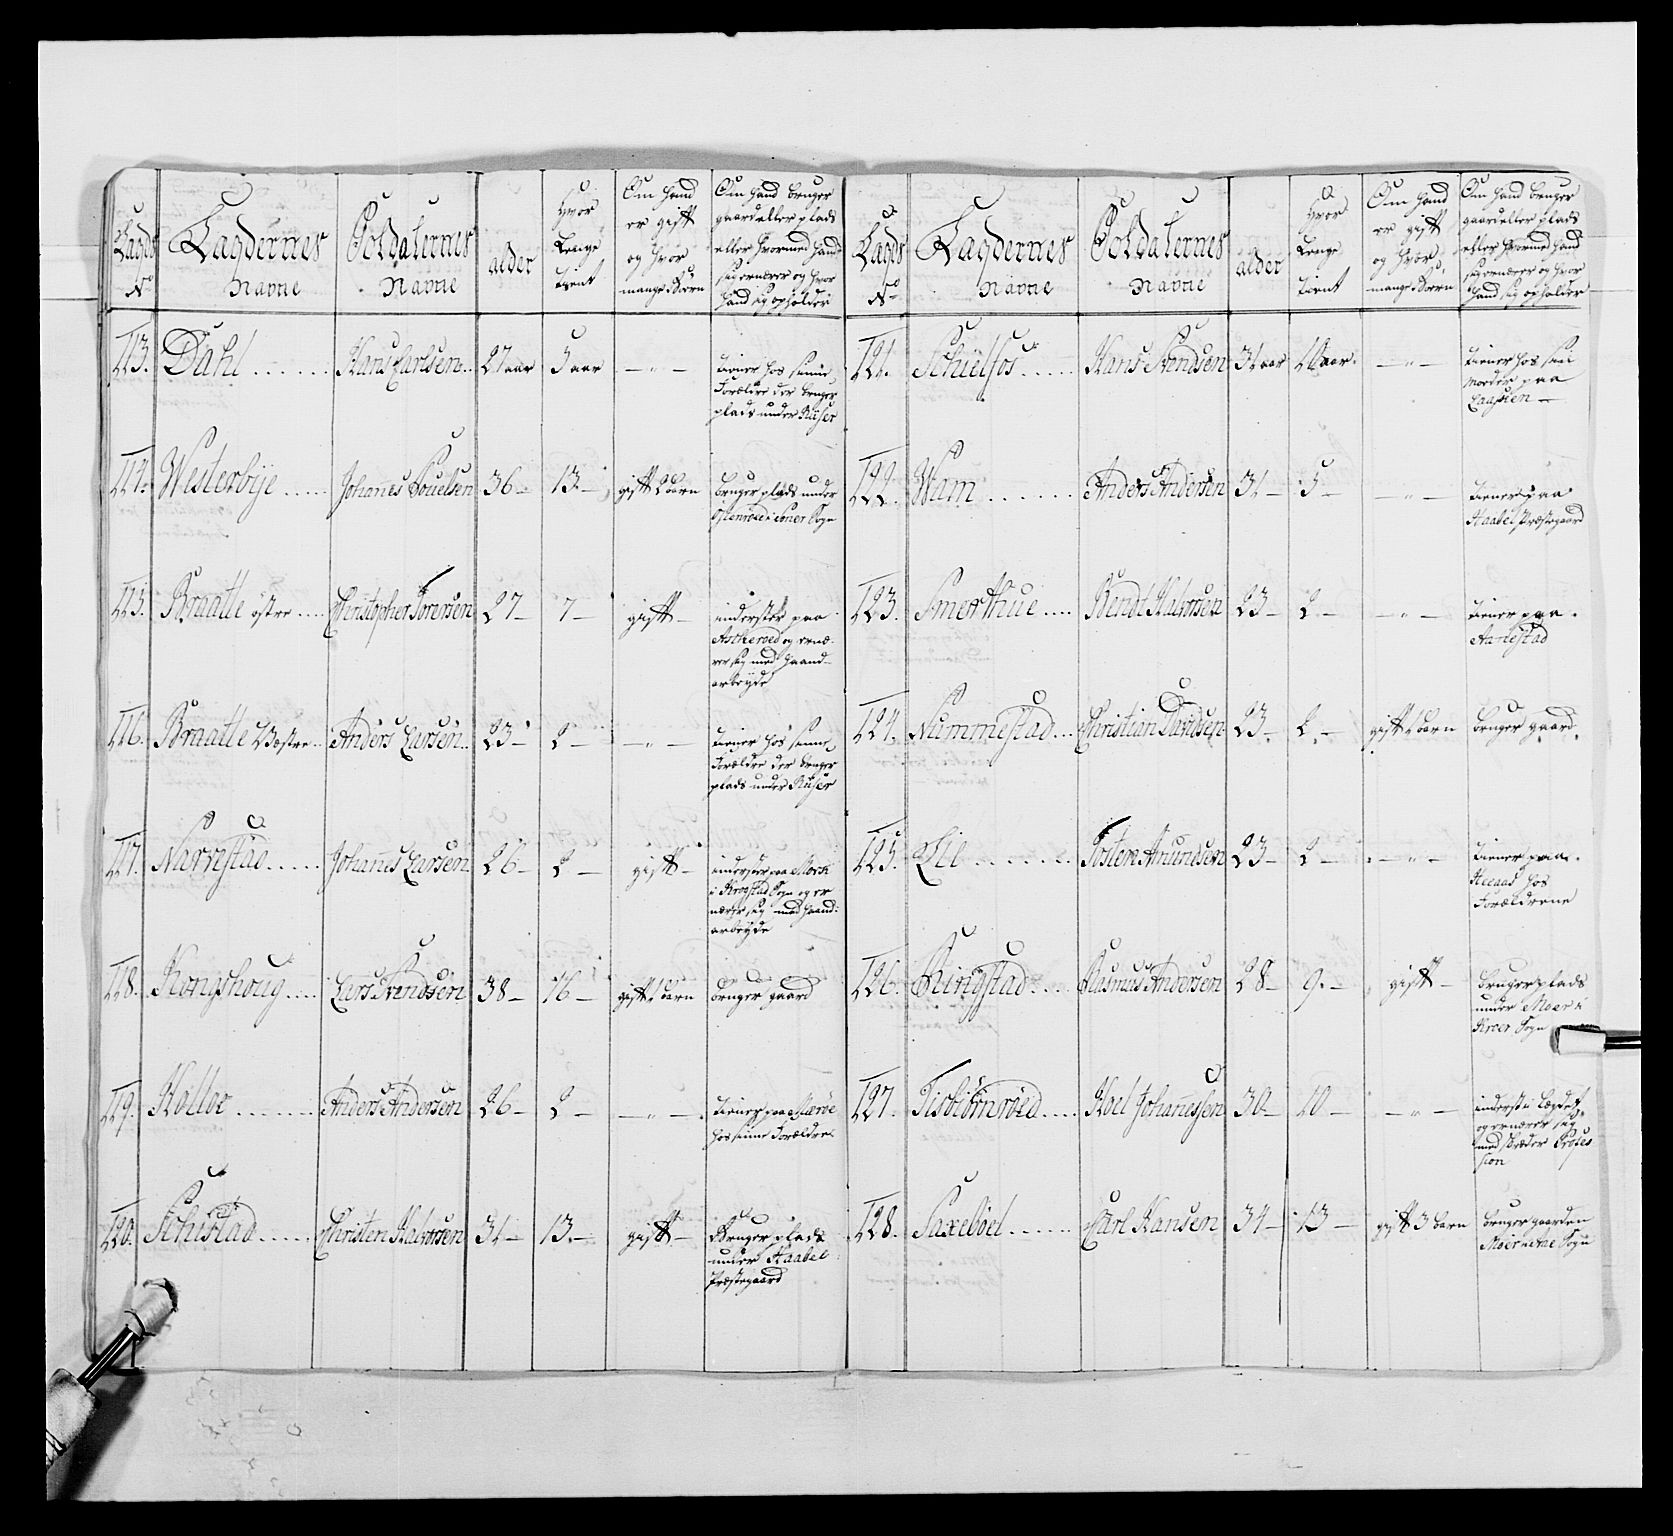 Lagds No
Lagdernes Navne
Soldaternes Navne
alder
Hvor Lenge tient
Om hand er gift og hvor mange Børn
Om hand bruger gaard eller plads eller hvormed hand sig ernærer og hvor hand sig opholder
113. Dahl Hans Carlsen 27 aar 5 aar — " — tiener hos sinne
Forældre der bruger
plads under Riiser
114. Westerbye Johanes Pouelsen 36 — 13 — gift 2 barn bruger plads under
Ostenroed i Soner Sogn
115. Braatte östre Christopher Sörensen 27 — 7 — gift — inderster paa
Askeroed og ernæ-
rer sig med haand-
arbeyde
116. Braatte Westre Anders Larsen 23 — 2 — — " — tiener hos sinne
Forældre der bruger
plads under Riiser
117. Narvestad Johanes Larsen 26 — 2 — gift — inderster paa Mork
i Krogstad Sogn og er
nærer sig med haand-
arbeyde
118. Kongshoug Lars Svendsen 38 — 16 — gift 1 barn bruger gaard
119. Holloe Anders Andersen 26 — 2 — — " — tiener paa
hos sinne Forældre
120. Schistad Christen Halvorsen 31 — 13 — gift — Bruger plads
under Haabel
Præstegaard
Lagds No
Lagdernes Navne
Soldaternes Navne
alder
Hvor Lenge tient
Om hand er gift og hvor mange Børn
Om hand bruger gaard eller plads eller hvormed hand sig ernærer og hvor hand sig opholder
121. Schielfos Hans Svendsen 31 aar 10 aar — " — tiener hos sin
Moder paa
122. Wam Anders Andersen 31 — 5 — " — tiener paa
Haabel Præstegaard
123. Smerthue Bendt Halvorsen 23 — 2 — — " — tiener paa
124. Nummestad Christian Davidsen 23 — 2 — gift 1 barn bruger gaard
125. Lie Tosten Amundsen 23 — 2 — — " — tiener paa
Heeaas hos
Forældrene
126. Ringstad Rasmus Andersen 28 — 9 — gift — bruger plads
under Moer i
Kroer Sogn
127. Tisbiörnröed Noel Johanessen 30 — 10 — — " — inderst i Lægdet
og ernærer sig
med skræder Profes
sion
128. Saxeböel Carl Hansen 34 — 13 — gift 3 barn bruger gaarden
Sogn